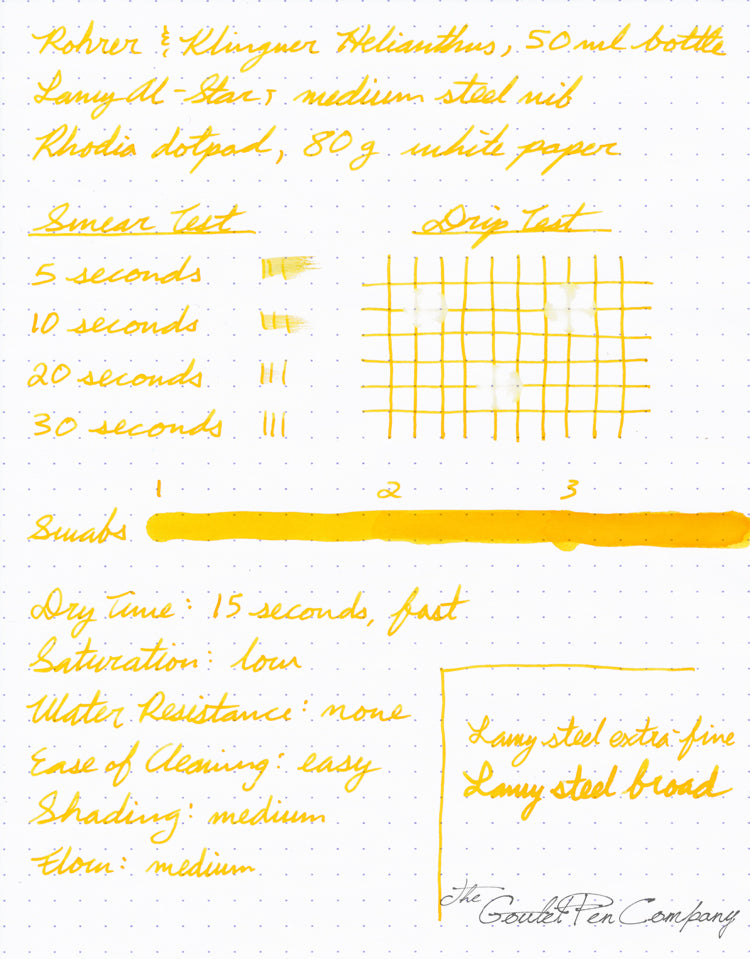 Rohrer & Klingner Helianthus, 50ml bottle
Lamy Al-Star, medium steel nib
Rhodia dotpad, 80g white paper
Smear Test
Drip Test
5 seconds
10 seconds
20 seconds
30 seconds
1 2 3
Swabs
Dry Time: 15 seconds, fast
Saturation: low
Water Resistance: none
Ease of Cleaning: easy
Shading: medium
Flow: medium
Lamy steel extra-fine
Lamy steel broad
The Goulet Pen Company